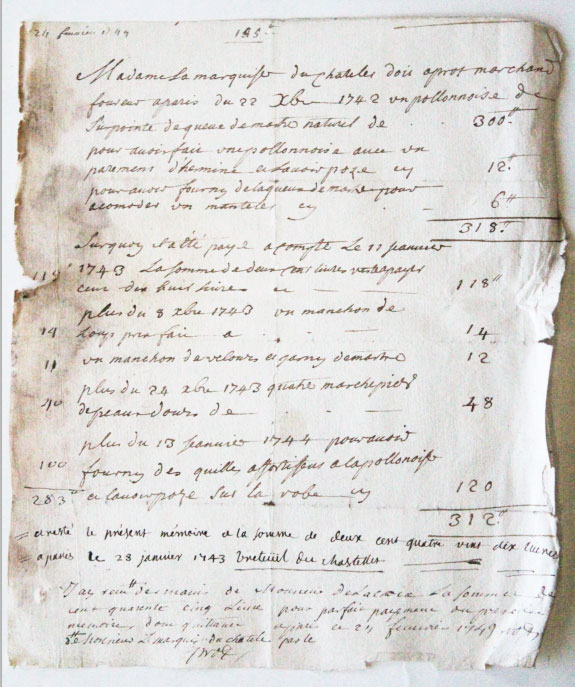 24 fevrier 1749
145ᵗᵗ
Madame La marquise du Chatelet doit a prost marchand
foureur a paris du 22 Xbre 1742 un pollonnoise de
Su pointe de queue de matre naturel de 300ᵗᵗ
pour avoir fait un pollonnoise avec un
parement d'hermine et lavoir poze cy 12ᵗᵗ
pour avoir fourny de la queue de matre pour
acomoder un mantelet cy 6ᵗᵗ
318ᵗᵗ
Surquoy il a été payé a compte Le 11 janvier
1743 La somme de deux cent livres reste a payer
cent dix huit livres cy 118ᵗᵗ
plus du 8 xbre 1743 un manchon de
14 Loup fait a 14
11 un manchon de velours et garny de martre 12
plus du 24 xbre 1743 quatre marchepieds
40 de peaux dours de 48
plus du 13 janvier 1744 pour avoir
100 fourny des quilles assortissus a la pollonoise
283ᵗᵗ et lavoir poze sur la robe cy 120
312ᵗᵗ
aresté le présent mémoire a la somme de deux cent quatre vint dix livres
a paris le 28 janvier 1743 Breteuil du Chastellet
J'ay receu des mains de Monsieur de La croix La somme de
cent quarente cinq Livre pour parfait payement du present
memoire dont quittance a paris ce 24 fevrier 1749
de Monsieur Le marquis du chatele
prost